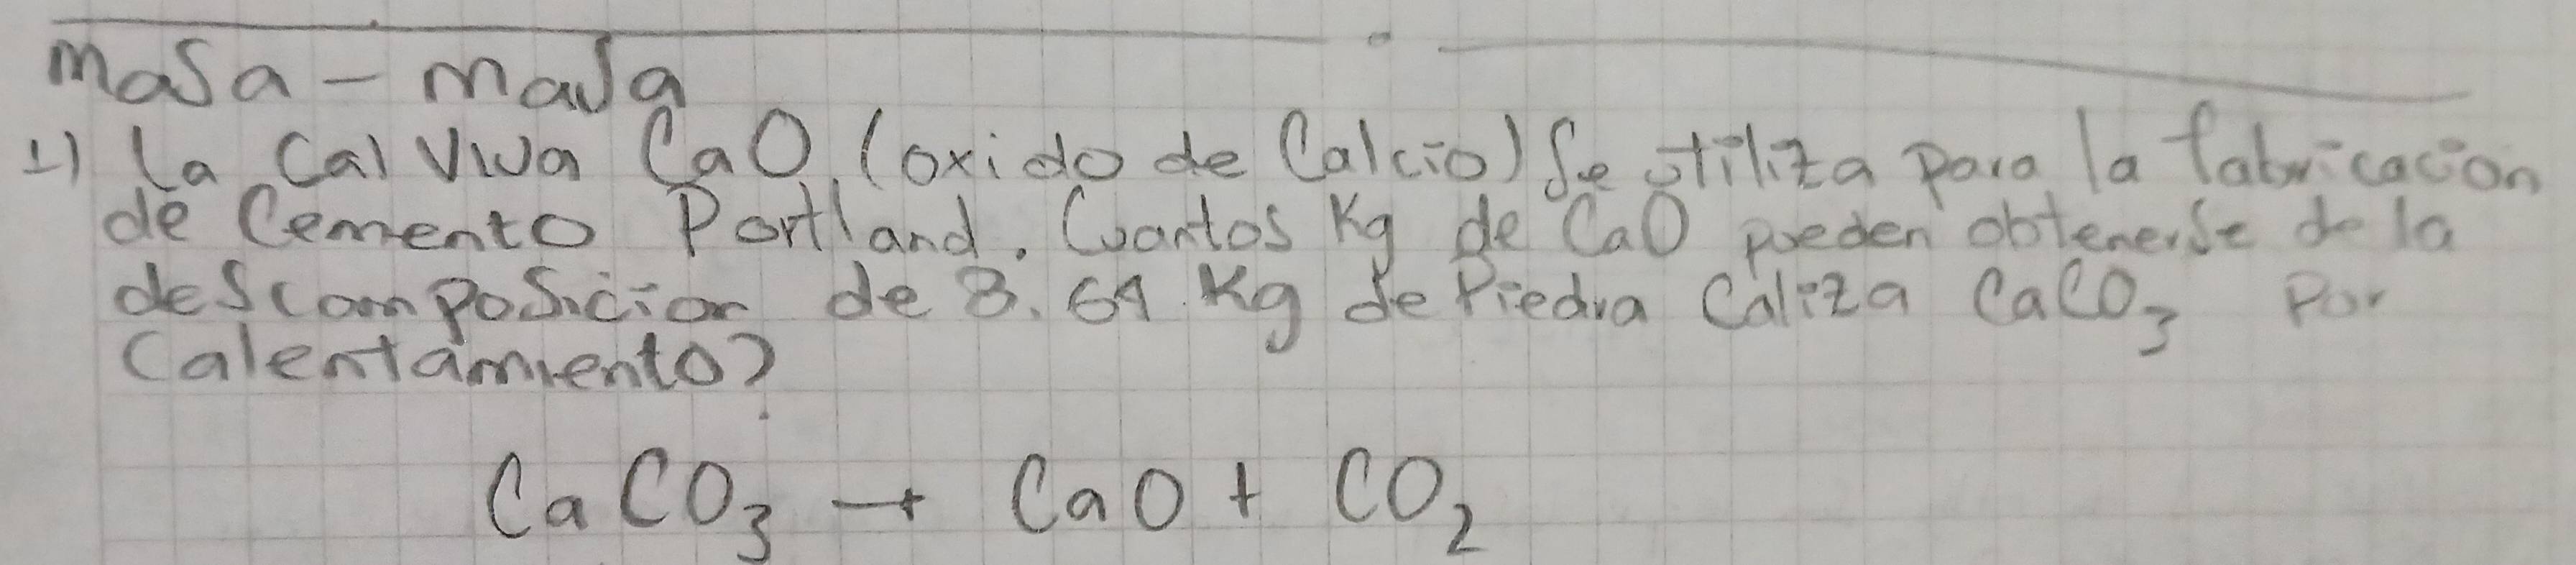 Masa - Masa
1) La Cal Viva CaO (oxido de Calcio) Se utiliza para la fabricacion
de Cemento Portland. Cuantos Kg de CaO pueden obtenerse de la
descomposicion de 8.64 Kg de Piedra Caliza CaCO₃ por
Calentamiento?
CaCO₃ → CaO + CO₂